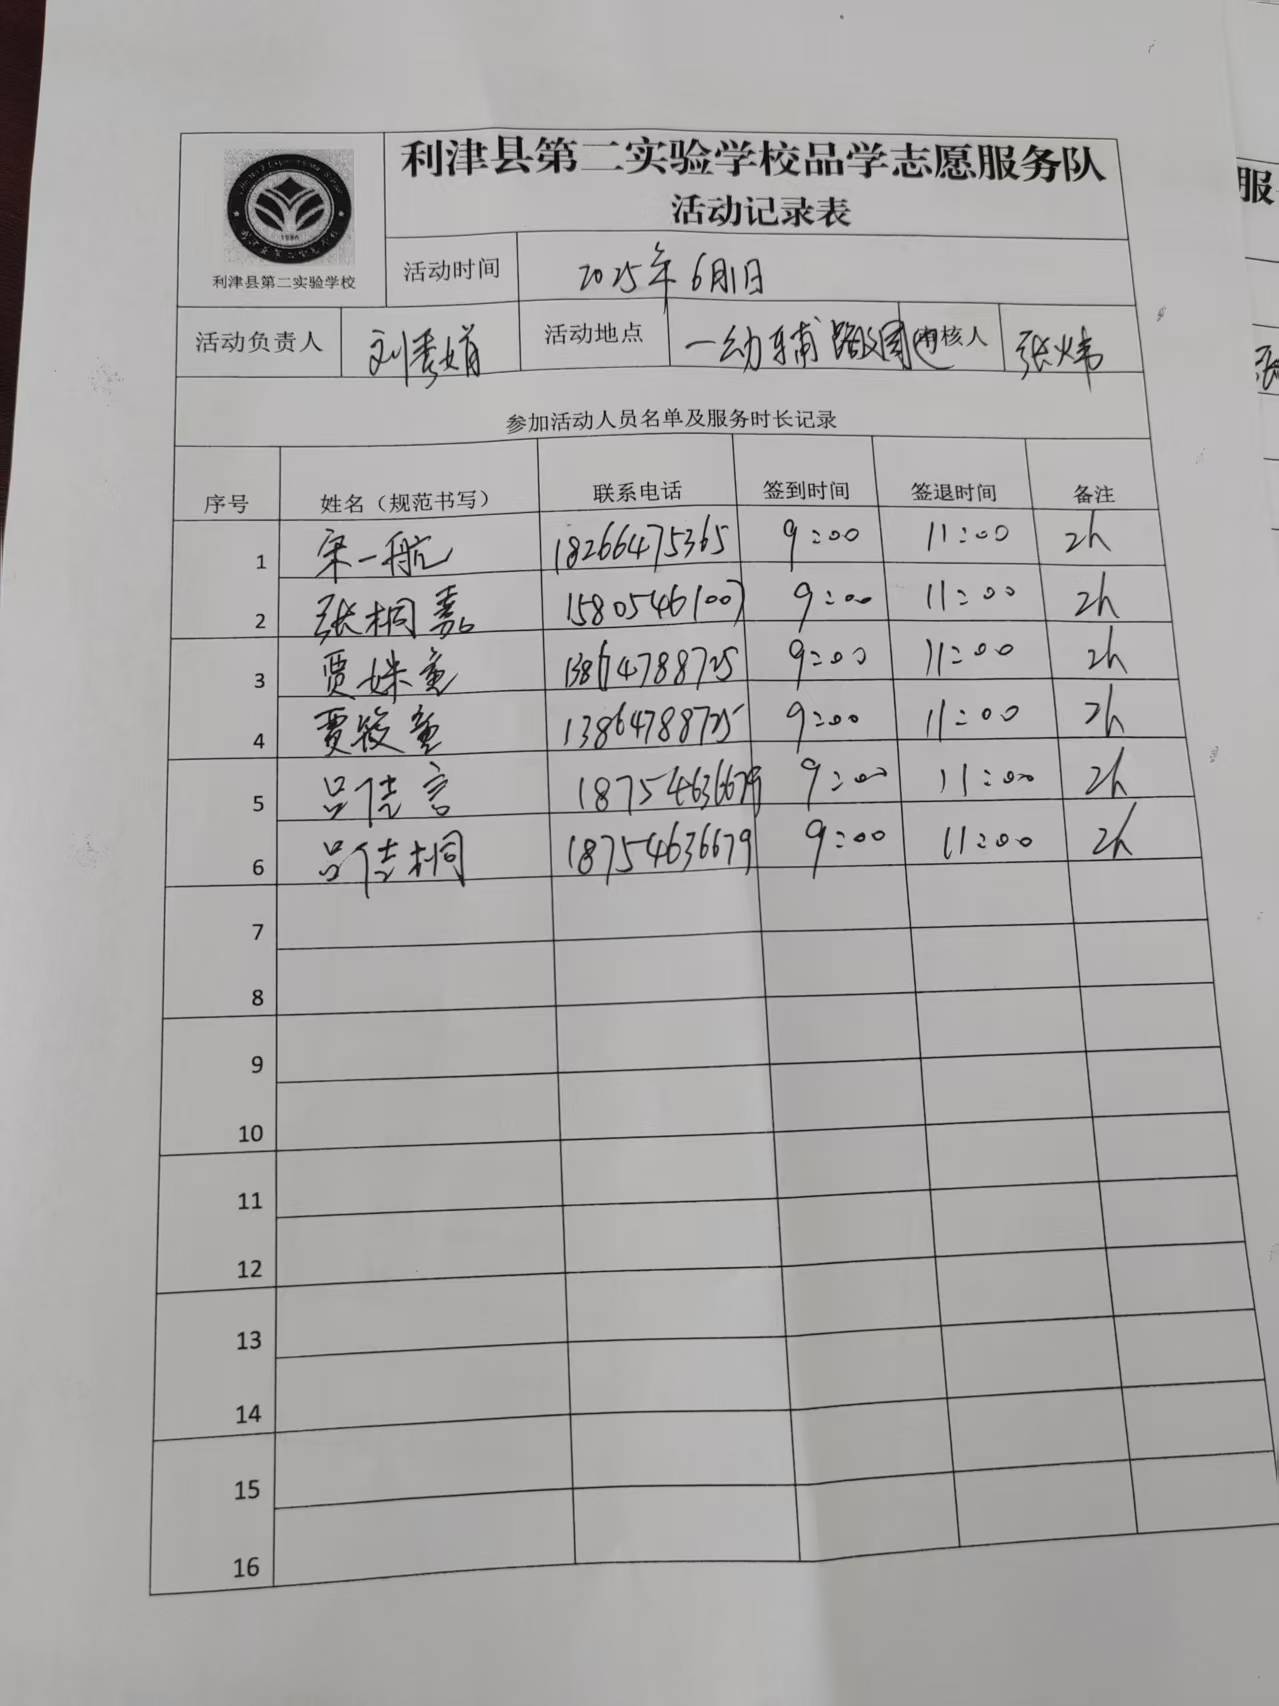 利津县第二实验学校品学志愿服务队
活动记录表
1986
利津县第二实验学校
活动时间 2025年6月1日
活动负责人 刘秀娟 活动地点 一幼辅路 周边 审核人 张炜
参加活动人员名单及服务时长记录
序号 姓名（规范书写） 联系电话 签到时间 签退时间 备注
1 宋一航 18266475365 9:00 11:00 2h
2 张桐嘉 15805461007 9:00 11:00 2h
3 贾姝童 13864788725 9:00 11:00 2h
4 贾骏童 13864788725 9:00 11:00 2h
5 吕佳言 18754636679 9:00 11:00 2h
6 吕佳桐 18754636679 9:00 11:00 2h
7
8
9
10
11
12
13
14
15
16
服
张